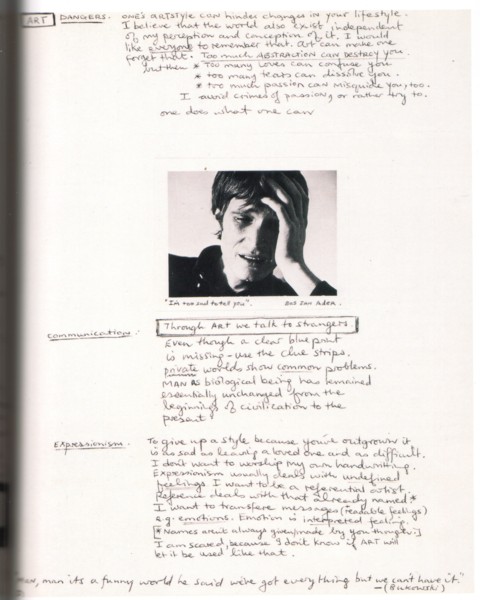 ART DANGERS. one's ARTSTYLE can hinder changes in your lifestyle.
I believe that the world also exist, independent
of my perception and conception of it. I would
like everyone to remember that. Art can make me
forget that. Too much ABSTRACTION can DESTROY you.
but then * Too many Loves can confuse you
* too many tears can dissolve you.
* too much passion can misguide you, too.
I avoid crimes of passion, or rather try to.
one does what one can
"I'm too sad to tell you". Bas Jan Ader.
communication: Through ART we talk to strangers
Even though a clear blue print
is missing - use the clue strips.
private worlds show common problems.
MAN as biological being has remained
essentially unchanged from the
beginnings of civilization to the
present
Expressionism. To give up a style because you've outgrown it
is as sad as leaving a loved one and as difficult.
I don't want to worship my own handwriting.
Expressionism usually deals with undefined
feelings I want to be a referential artist.
Reference deals with that already named *
I want to transfere messages (readable feelings)
e.g. emotions. Emotion is interpreted feeling.
[* Names aren't always given/made by you though.]
I am scared, because I don't know if ART will
let it be used like that.
man it's a funny world he said we've got everything but we can't have it."
— (Bukowski)